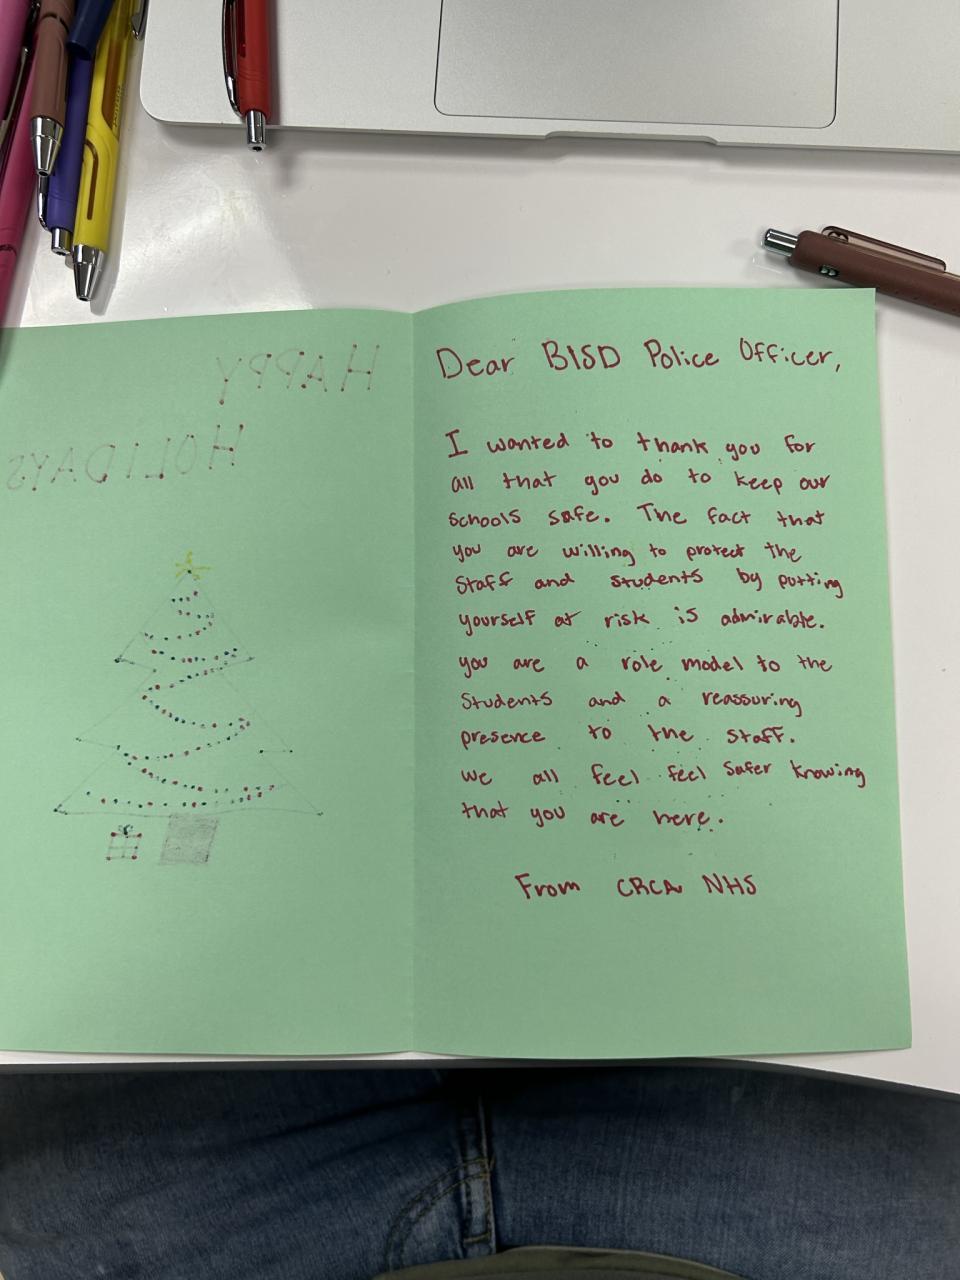 HAPPY
HOLIDAYS
Dear BISD Police Officer,
I wanted to thank you for
all that you do to keep our
schools safe. The fact that
you are willing to protect the
Staff and students by putting
yourself at risk is admirable.
you are a role model to the
Students and a reassuring
presence to the staff.
We all feel feel safer knowing
that you are here.
From CRCA NHS